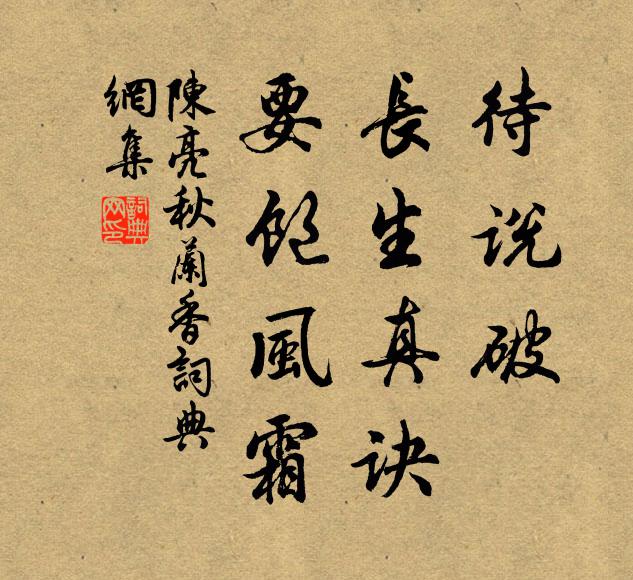 待说破
長生真诀
要飽風霜
陳亮秋蘭香詞典
網集
詞典
网印